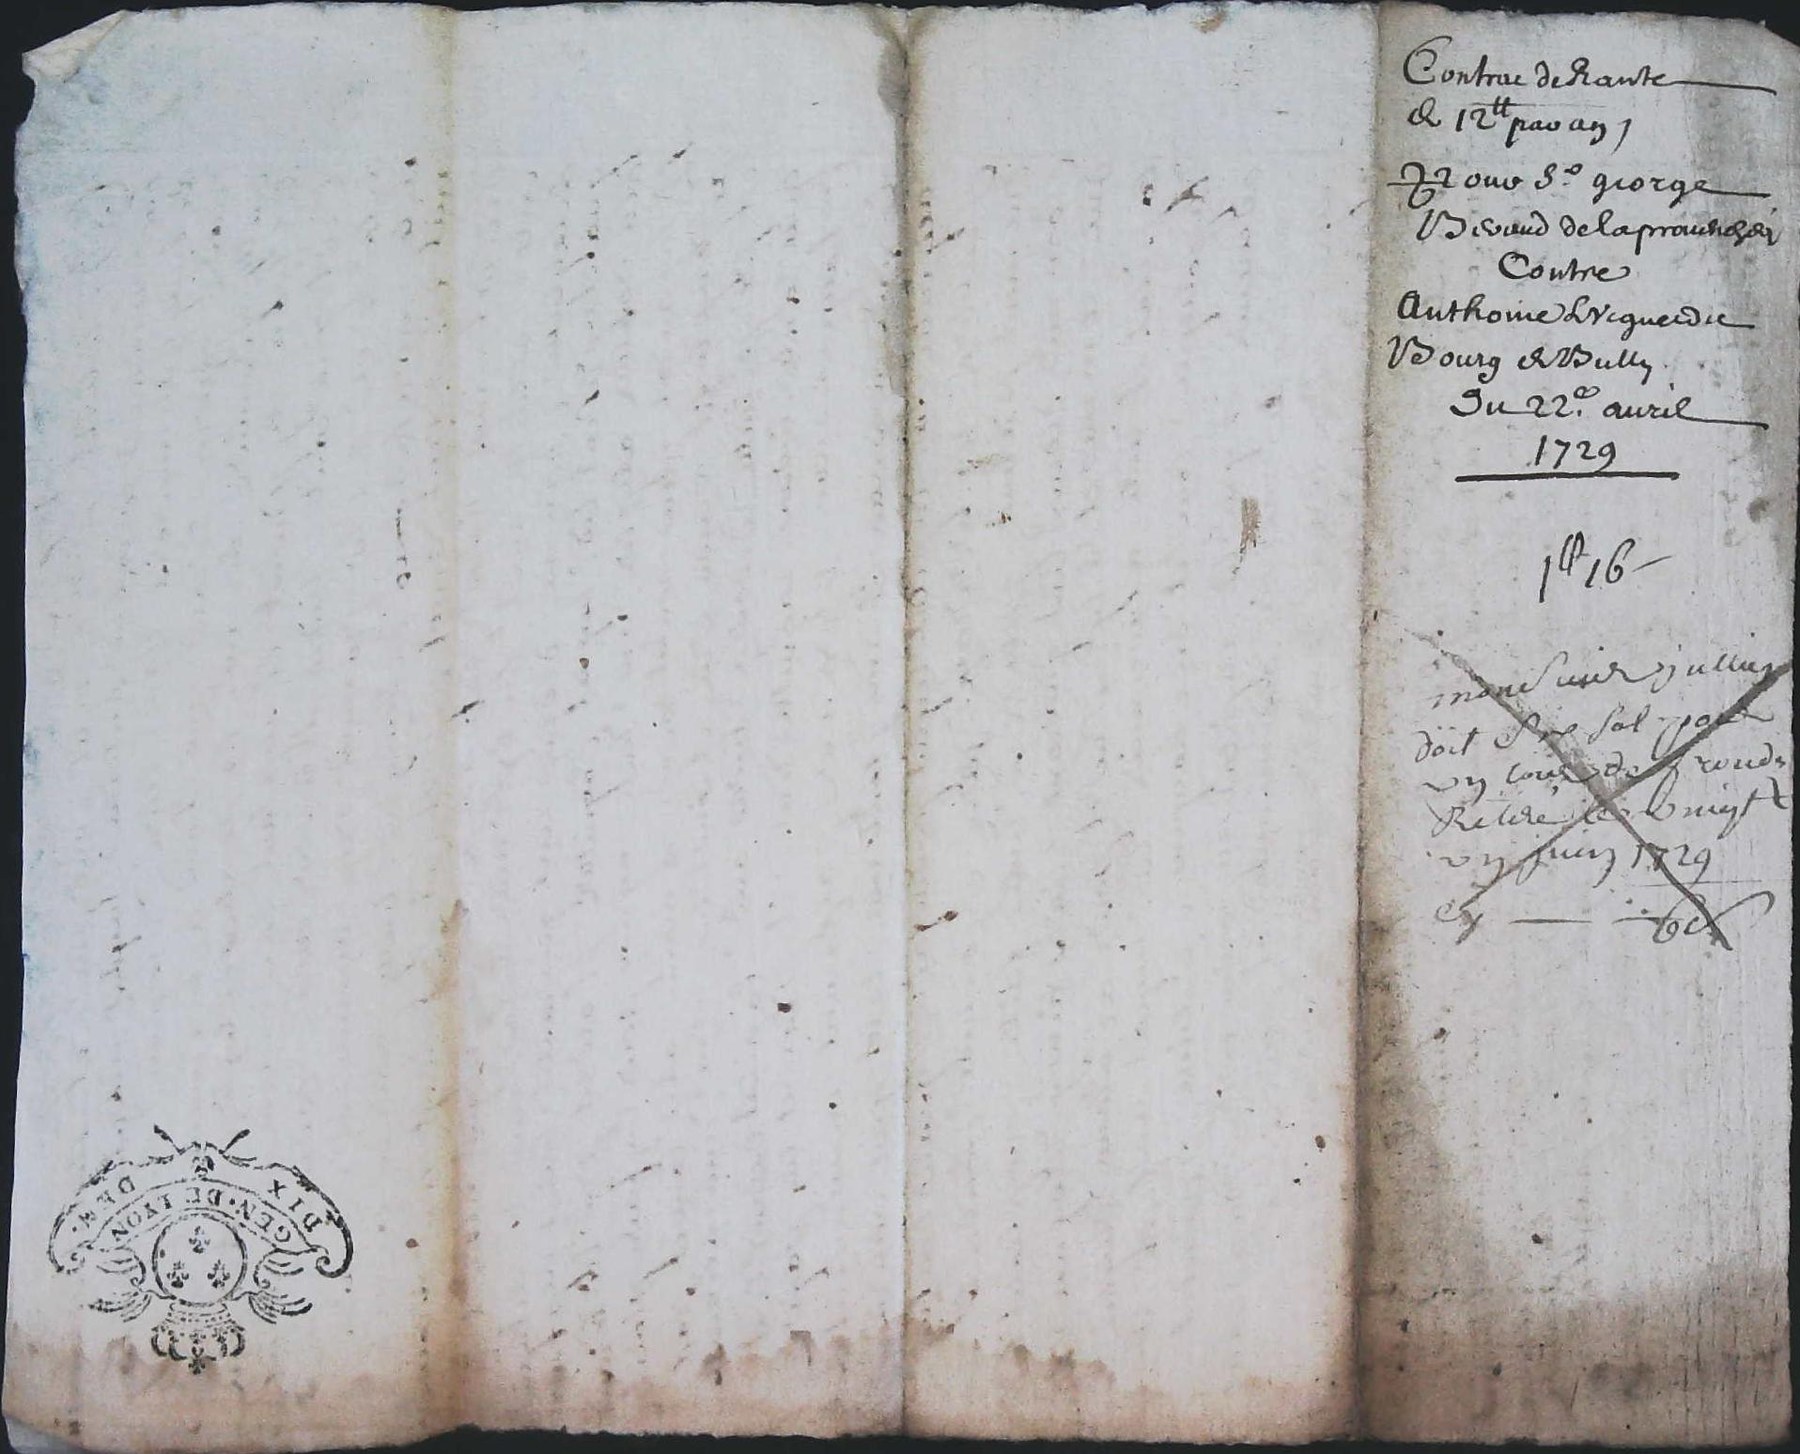 Contrac de Rante
de 12tt par an
pour Sr george
Beraud de la
Contre
Anthoine Viguerdu
Bourg de Bully
Du 22e auril
1729
1tt 16
monsieur jullin
doit six sol pour
vn
Retiré le vingt
vn juin 1729
cy 6s
DIX DEN.
GEN. DE LYON